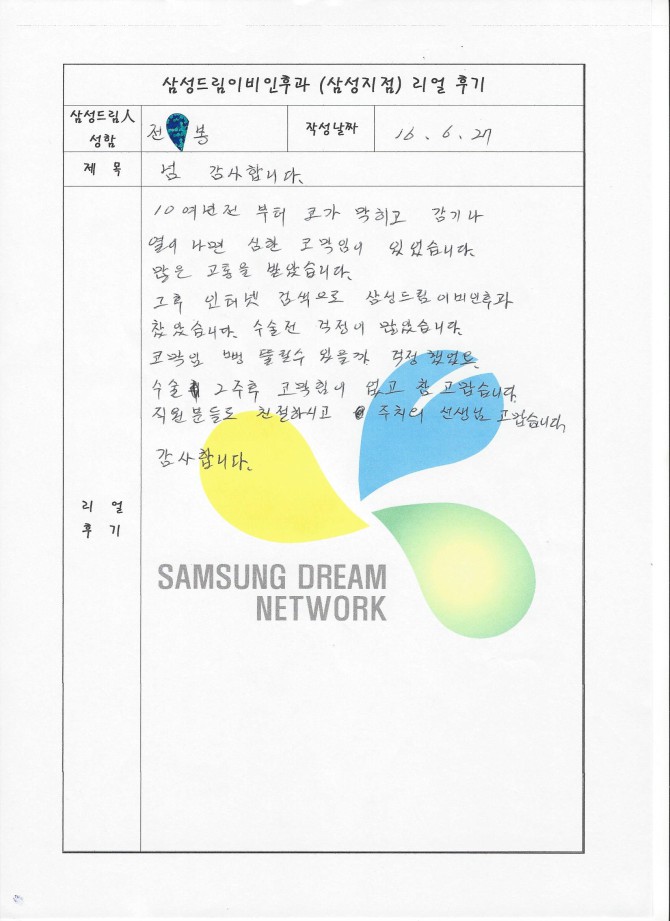 삼성드림이비인후과 (삼성지점) 리얼 후기
삼성드림人 성함
전 봉
작성날짜
16. 6. 27
제 목
넘 감사합니다.
리 얼
후 기
10여년전 부터 코가 막히고 감기나
열이 나면 심한 코막임이 있었습니다.
많은 고통을 받았습니다.
그후 인터넷 검색으로 삼성드림이비인후과
찾았습니다. 수술전 걱정이 많았습니다.
코막임 뻥 뚤릴수 있을까 걱정
수술 2주후 코막힘이 없고 참 고맙습니다.
직원분들도 친절하시고 주치의 선생님 고맙습니다.
감사합니다.
SAMSUNG DREAM
NETWORK